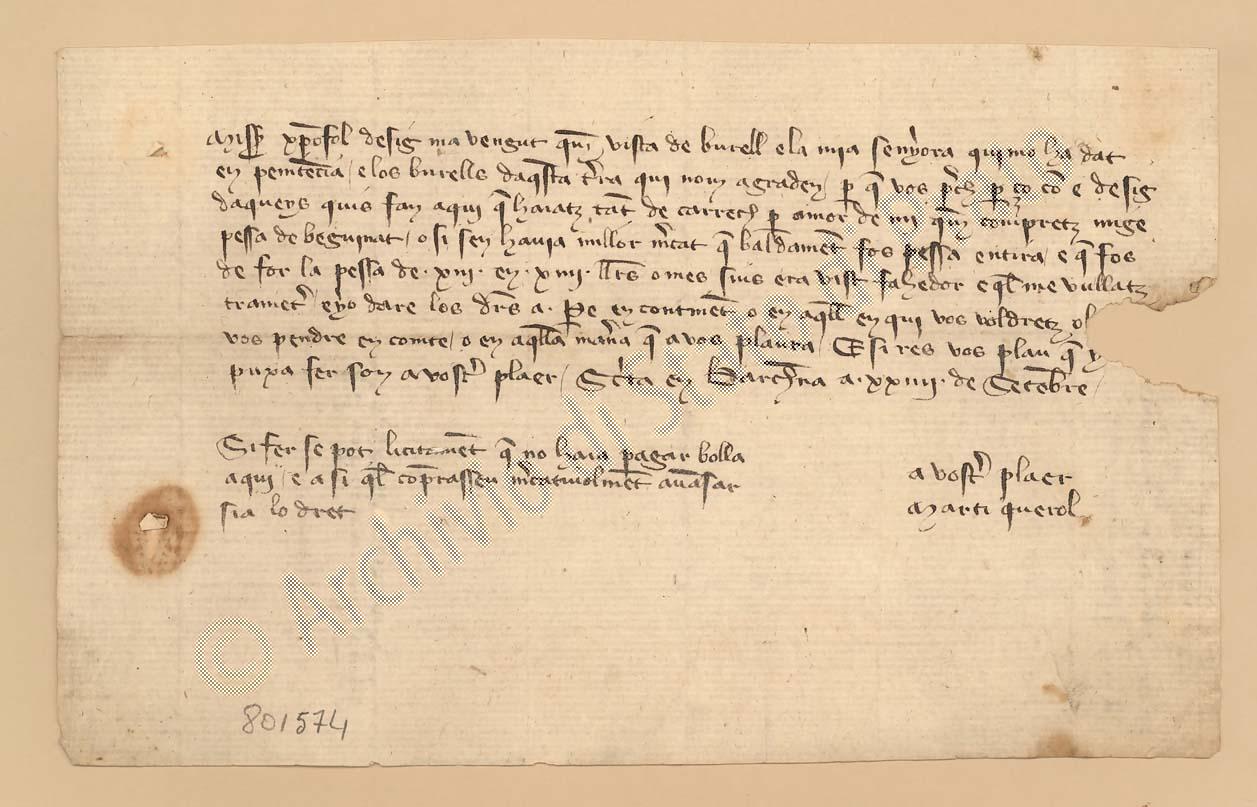 Miss xp̄ofol desig ma vengut quem vista de burell e la mia senyora qui mo ha dat
en penitēcia / e los burells daq̄sta t̄ra qui nom agraden / p q̄ vos p̄ch p ço cō e desig
daqueys quis fan aqui q̄ haiatz tāt de carrech p amor de mi quem compretz mige
pessa de beguinat / o si sen havia millor m̄cat q̄ baldamēt fos pessa entira / e q̄ fos
de for la pessa de · xiii · en · xiiii · ll̄rs o mes sius era vist fahedor e q̄l me vullatz
tramet̄ / e yo dare los drs̄ a · Pe en contınēt o en aq̄ll en qui vos voldretz o
vos pendre en comte / o en aq̄lla man̄a q̄ a vos plaura / E si res vos plau q̄ y
puxa fer som a vost̄ plaer / Sc̄ta en Barch̄na a · xxiiii · de Setēbre /
Si fer se pot licitamēt q̄ no haia pagar bolla
aqui / e a si q̄l cōprassen m̄cativolmēt
sia lo dret
a vost̄ plaer
Marti querol
© Archivio di Stato di
801574